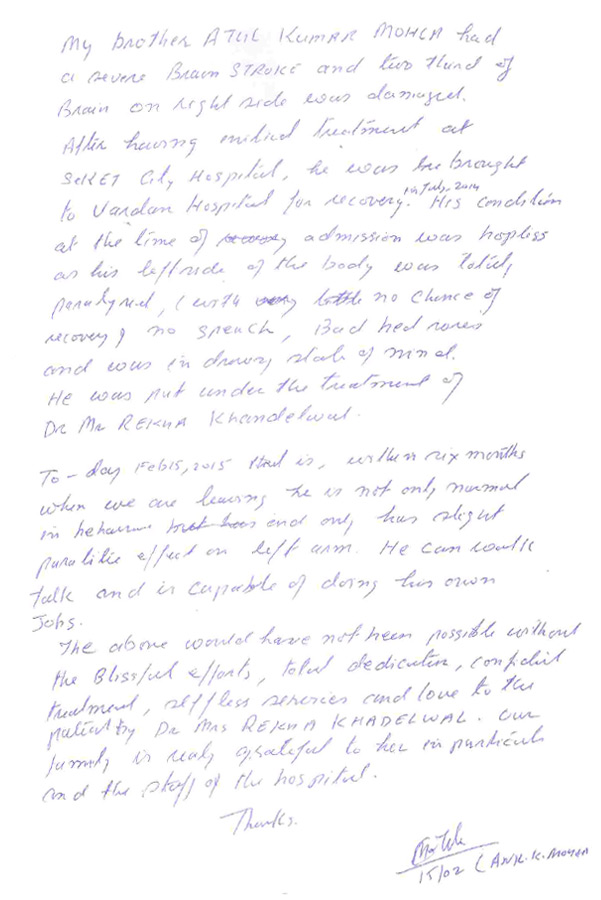 My brother ATUL KUMAR MOHLA had
a severe Brain STROKE and two third of
Brain on right side was damaged.
After having medical treatment at
SAKET City Hospital, he was brought
to Vardan Hospital for recovery. in July, 2014 His condition
at the time of admission was hopless
as his left side of the body was totaly
paralysed, (with no chance of
recovery) no speach, Bad bed sores
and was in drowsy state of mind.
He was put under the treatment of
Dr Mrs REKHA Khandelwal.
To-day Feb 15, 2015 that is, within six months
when we are leaving he is not only normal
in behaviour and only has slight
paralitic effect on left arm. He can walk
talk and is capable of doing his own
Jobs.
The above would have not been possible without
the Blissful efforts, total dedication,
treatment, selfless services and love to the
patient by Dr Mrs REKHA KHADELWAL. Our
family is realy grateful to her in particular
and the staff of the hospital.
Thanks.
15/02 ( K. MOHLA